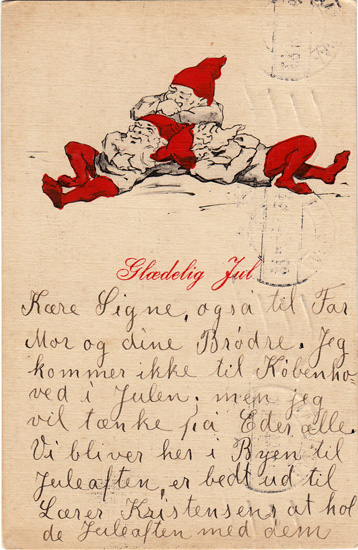 Glædelig Jul
Kære Signe, også til Far
Mor og dine Brødre. Jeg
kommer ikke til Københo
ved i Julen, men jeg
vil tænke på Eder alle.
Vi bliver her i Byen til
Juleaften, er bedt ud til
Lærer Kristensens at hol
de Juleaften med dem